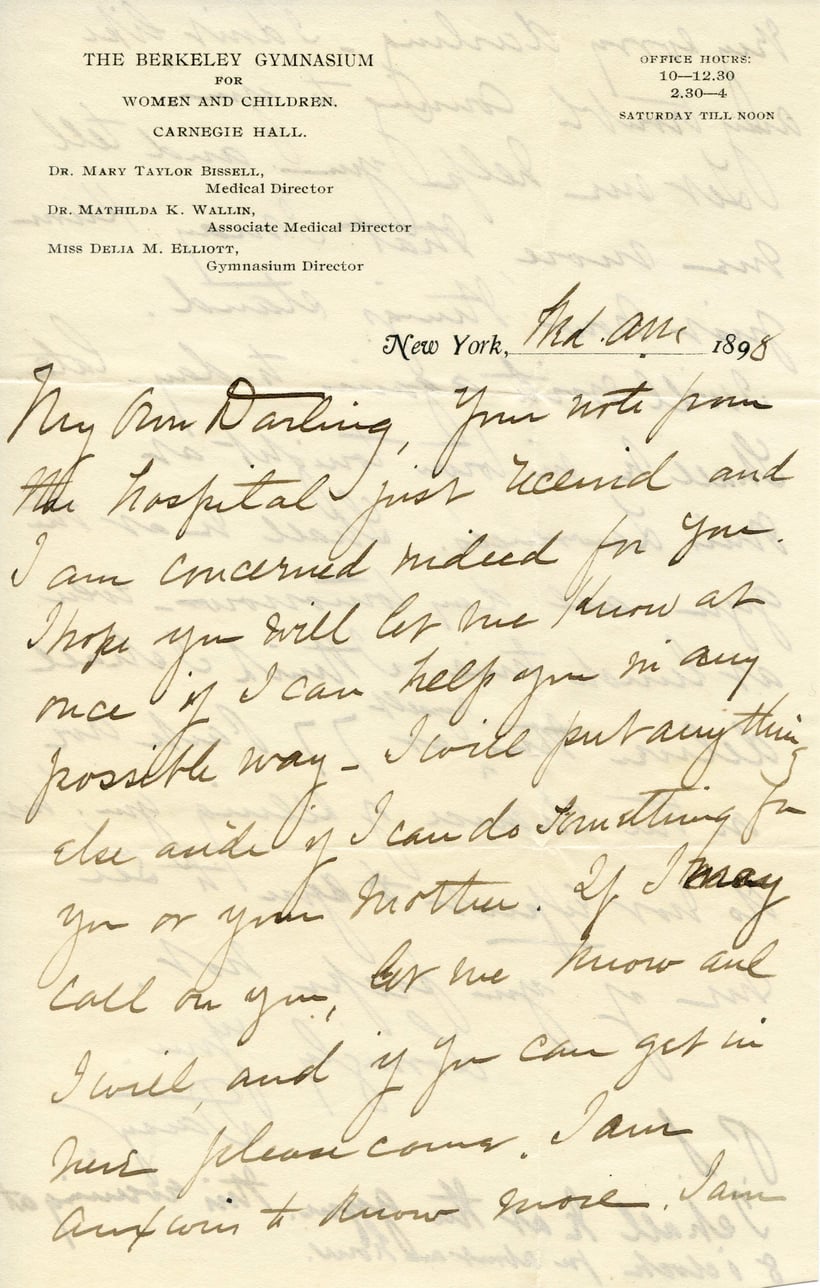 THE BERKELEY GYMNASIUM
FOR
WOMEN AND CHILDREN.
CARNEGIE HALL.
DR. MARY TAYLOR BISSELL,
Medical Director
DR. MATHILDA K. WALLIN,
Associate Medical Director
MISS DELIA M. ELLIOTT,
Gymnasium Director
OFFICE HOURS:
10—12.30
2.30—4
SATURDAY TILL NOON
New York, 1898
My Own Darling, Your note from
the hospital just received and
I am concerned indeed for you.
I hope you will let me know at
once if I can help you in any
possible way – I will put anything
else aside if I can do something for
you or your mother. If I may
call on you, let me know and
I will, and if you can get in
here please come. I am
anxious to know more. I am